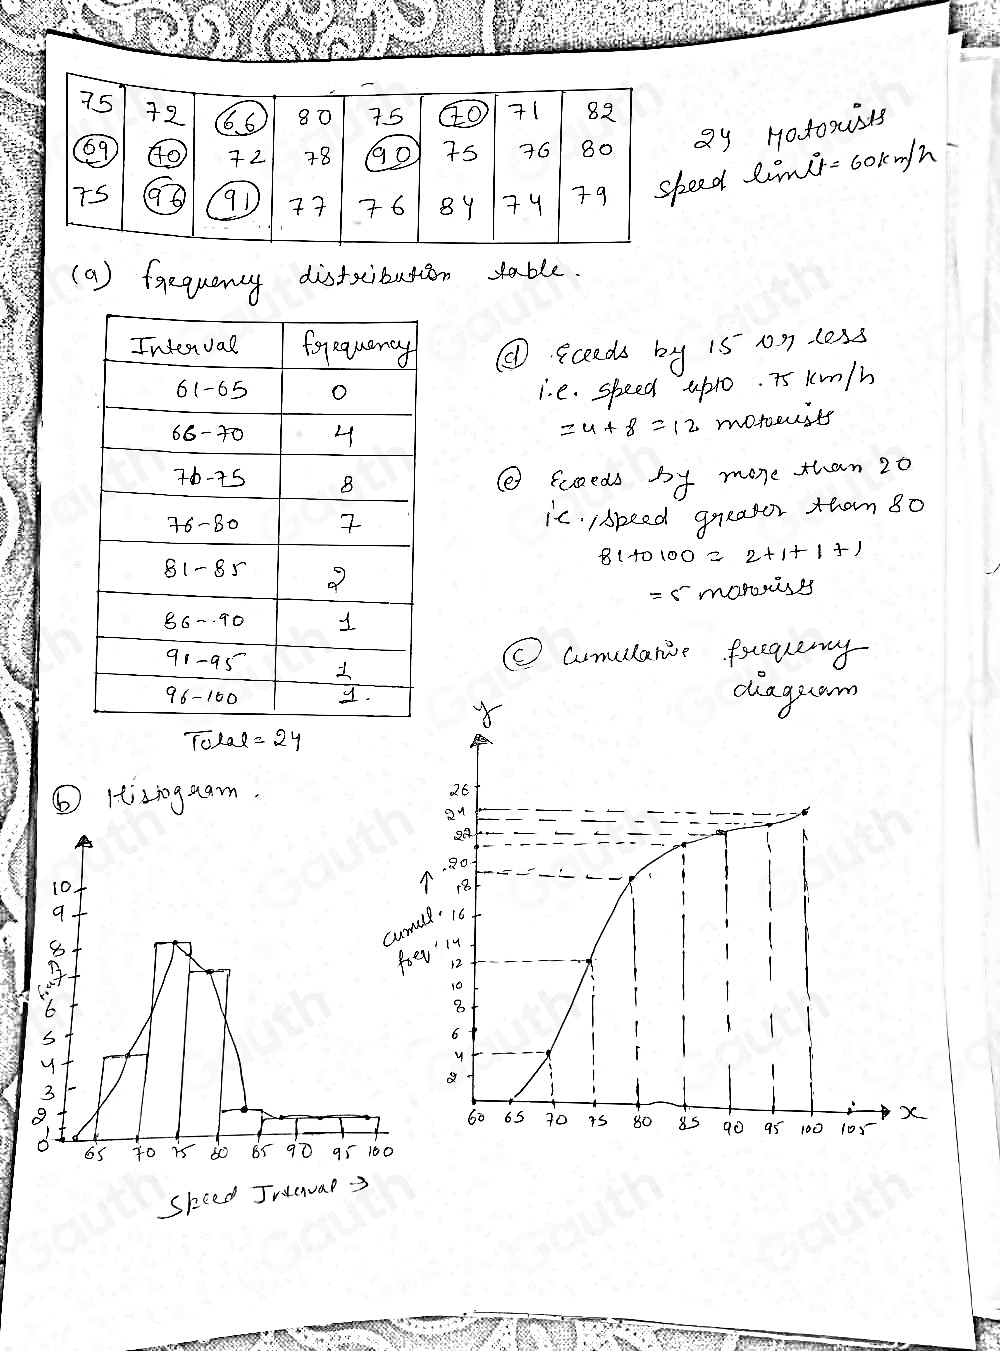 75 72 66 80 75 70 71 82
69 70 72 78 90 75 76 80
75 96 91 77 76 84 74 79
24 Motorists
speed limit = 60km/h
(a) frequency distribution table.
Interval frequency
61-65 0
66-70 4
70-75 8
76-80 7
81-85 2
86-90 1
91-95 1
96-100 1.
Total = 24
(d) Eceeds by 15 or less
i.e. speed upto .75 km/h
= 4 + 8 = 12 motorists
(e) Eceeds by more than 20
i.e., speed greater than 80
81 to 100 = 2+1+1+1
= 5 motorists
(c) Cumulative frequency
diagram
(b) Histogram.
10
9
8
7
6
5
4
3
2
1
0
65 70 75 80 85 90 95 100
Speed Interval →
y
26
24
22
20
18
16
14
12
10
8
6
4
2
cumul.
freq.
60 65 70 75 80 85 90 95 100 105
x
Gauth